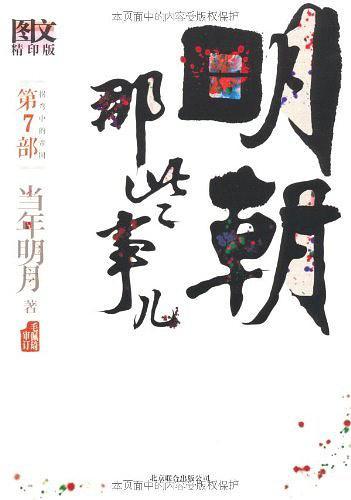 本页面中的内容受版权保护
图文
精印版
第7部
拐弯中的帝国
明朝
那些事儿
当年明月 著
毛佩琦
审订
北京联合出版公司
本页面中的内容受版权保护